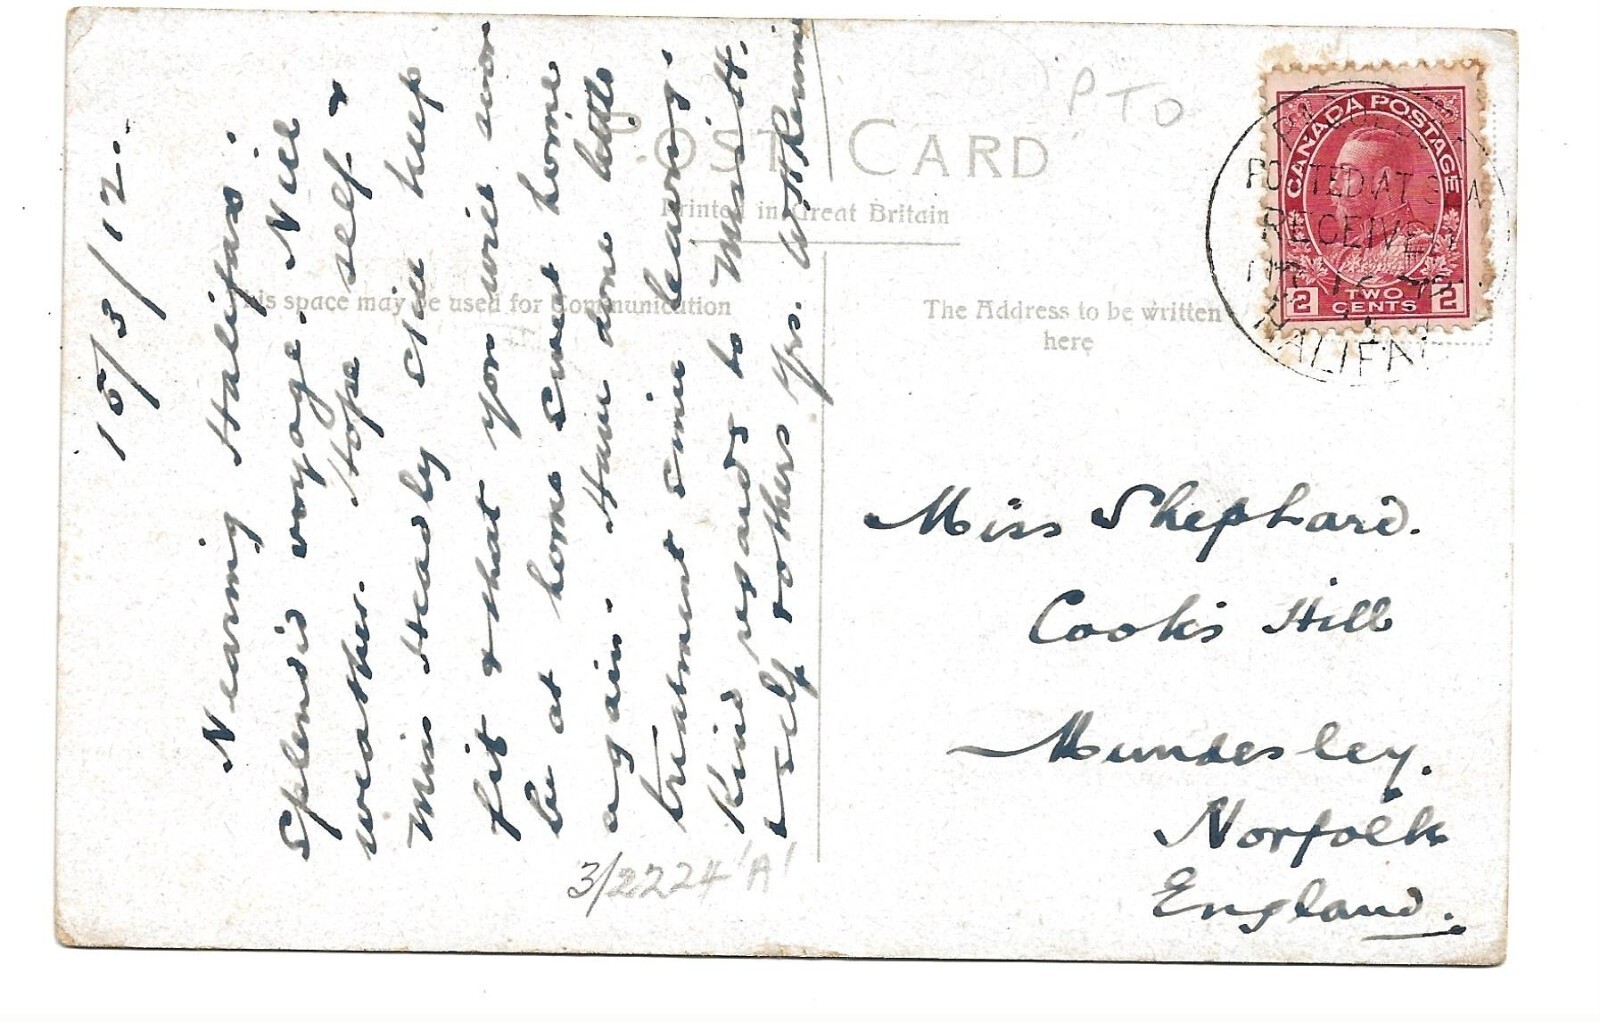 15/3/12.
Nearing Halifax.
Splendid voyage. Nice
weather. Hope self &
Miss Steadly still keep
fit & that you will soon
be at home sweet home
again. Have done little
treatment since leaving.
Kind regards to Miss H.
& self & others Yrs.
POST CARD
Printed in Great Britain
This space may be used for Communication
The Address to be written
here
P T O
CANADA POSTAGE
2 TWO CENTS 2
POSTED AT SEA
RECEIVED
HALIFAX
Miss Shephard.
Cook's Hill
Mundesley.
Norfolk
England.
3/2224 'A'